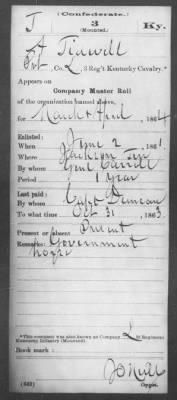 (Confederate.)
T 3 Ky.
(Mounted.)
Pvt, Co. L, 3 Reg't Kentucky Cavalry.*
Appears on
Company Muster Roll
of the organization named above,
for March & April, 1864
Enlisted:
When June 2, 1861.
Where Jackson Ten
By whom Genl Carroll
Period 1 year
Last paid:
By whom Capt Duncan
To what time Oct 31, 1863.
Present or absent Present
Remarks: Government
horse
*This company was also known as Company L, 3d Regiment
Kentucky Infantry (Mounted).
Book mark:
(642) Copyist.